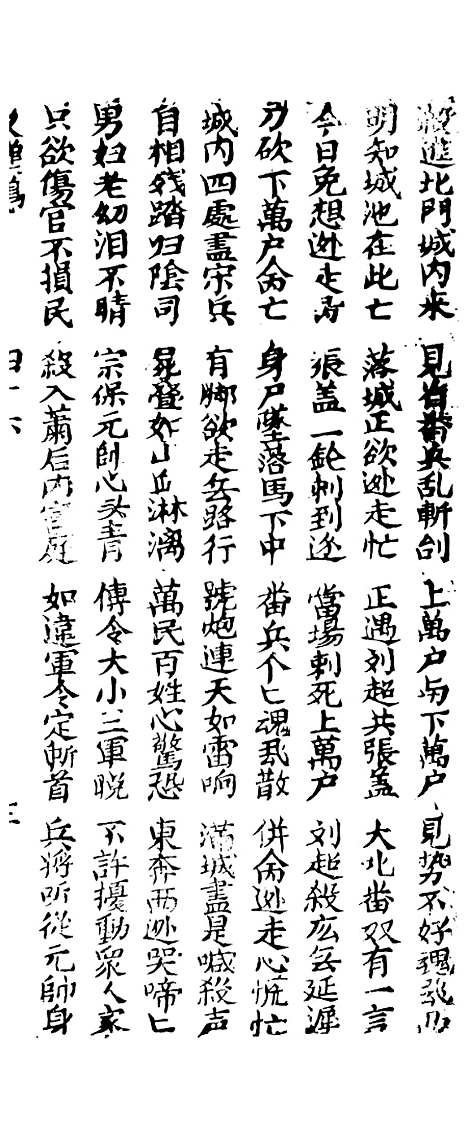 進北門城内来 見者番兵乱斬 上萬户与下萬户 見势不好魂飛
明知城池在此亡 落城正欲逊走忙 正遇刘超共張盖 大北番奴有一言
今日免想逊走 張盖一鎗刺到 當場刺死上萬户 刘超殺広無延遲
刀砍下萬户命亡 身尸墜落馬下中 番兵个匕魂飛散 併命逊走心慌忙
城内四處盡宋兵 有脚欲走無路行 號炮連天如雷响 滿城盡是喊殺声
自相殘踏归陰司 叠如山丘淋漓 萬民百姓心驚恐 東奔西逊哭啼匕
男妇老幼泪不晴 宗保元帥心头青 傳令大小三軍晚 不許擾動衆人家
只欲傷官不損民 殺入蕭后内宫庭 如違軍令定斬首 兵將听從元帥身
四十六 三